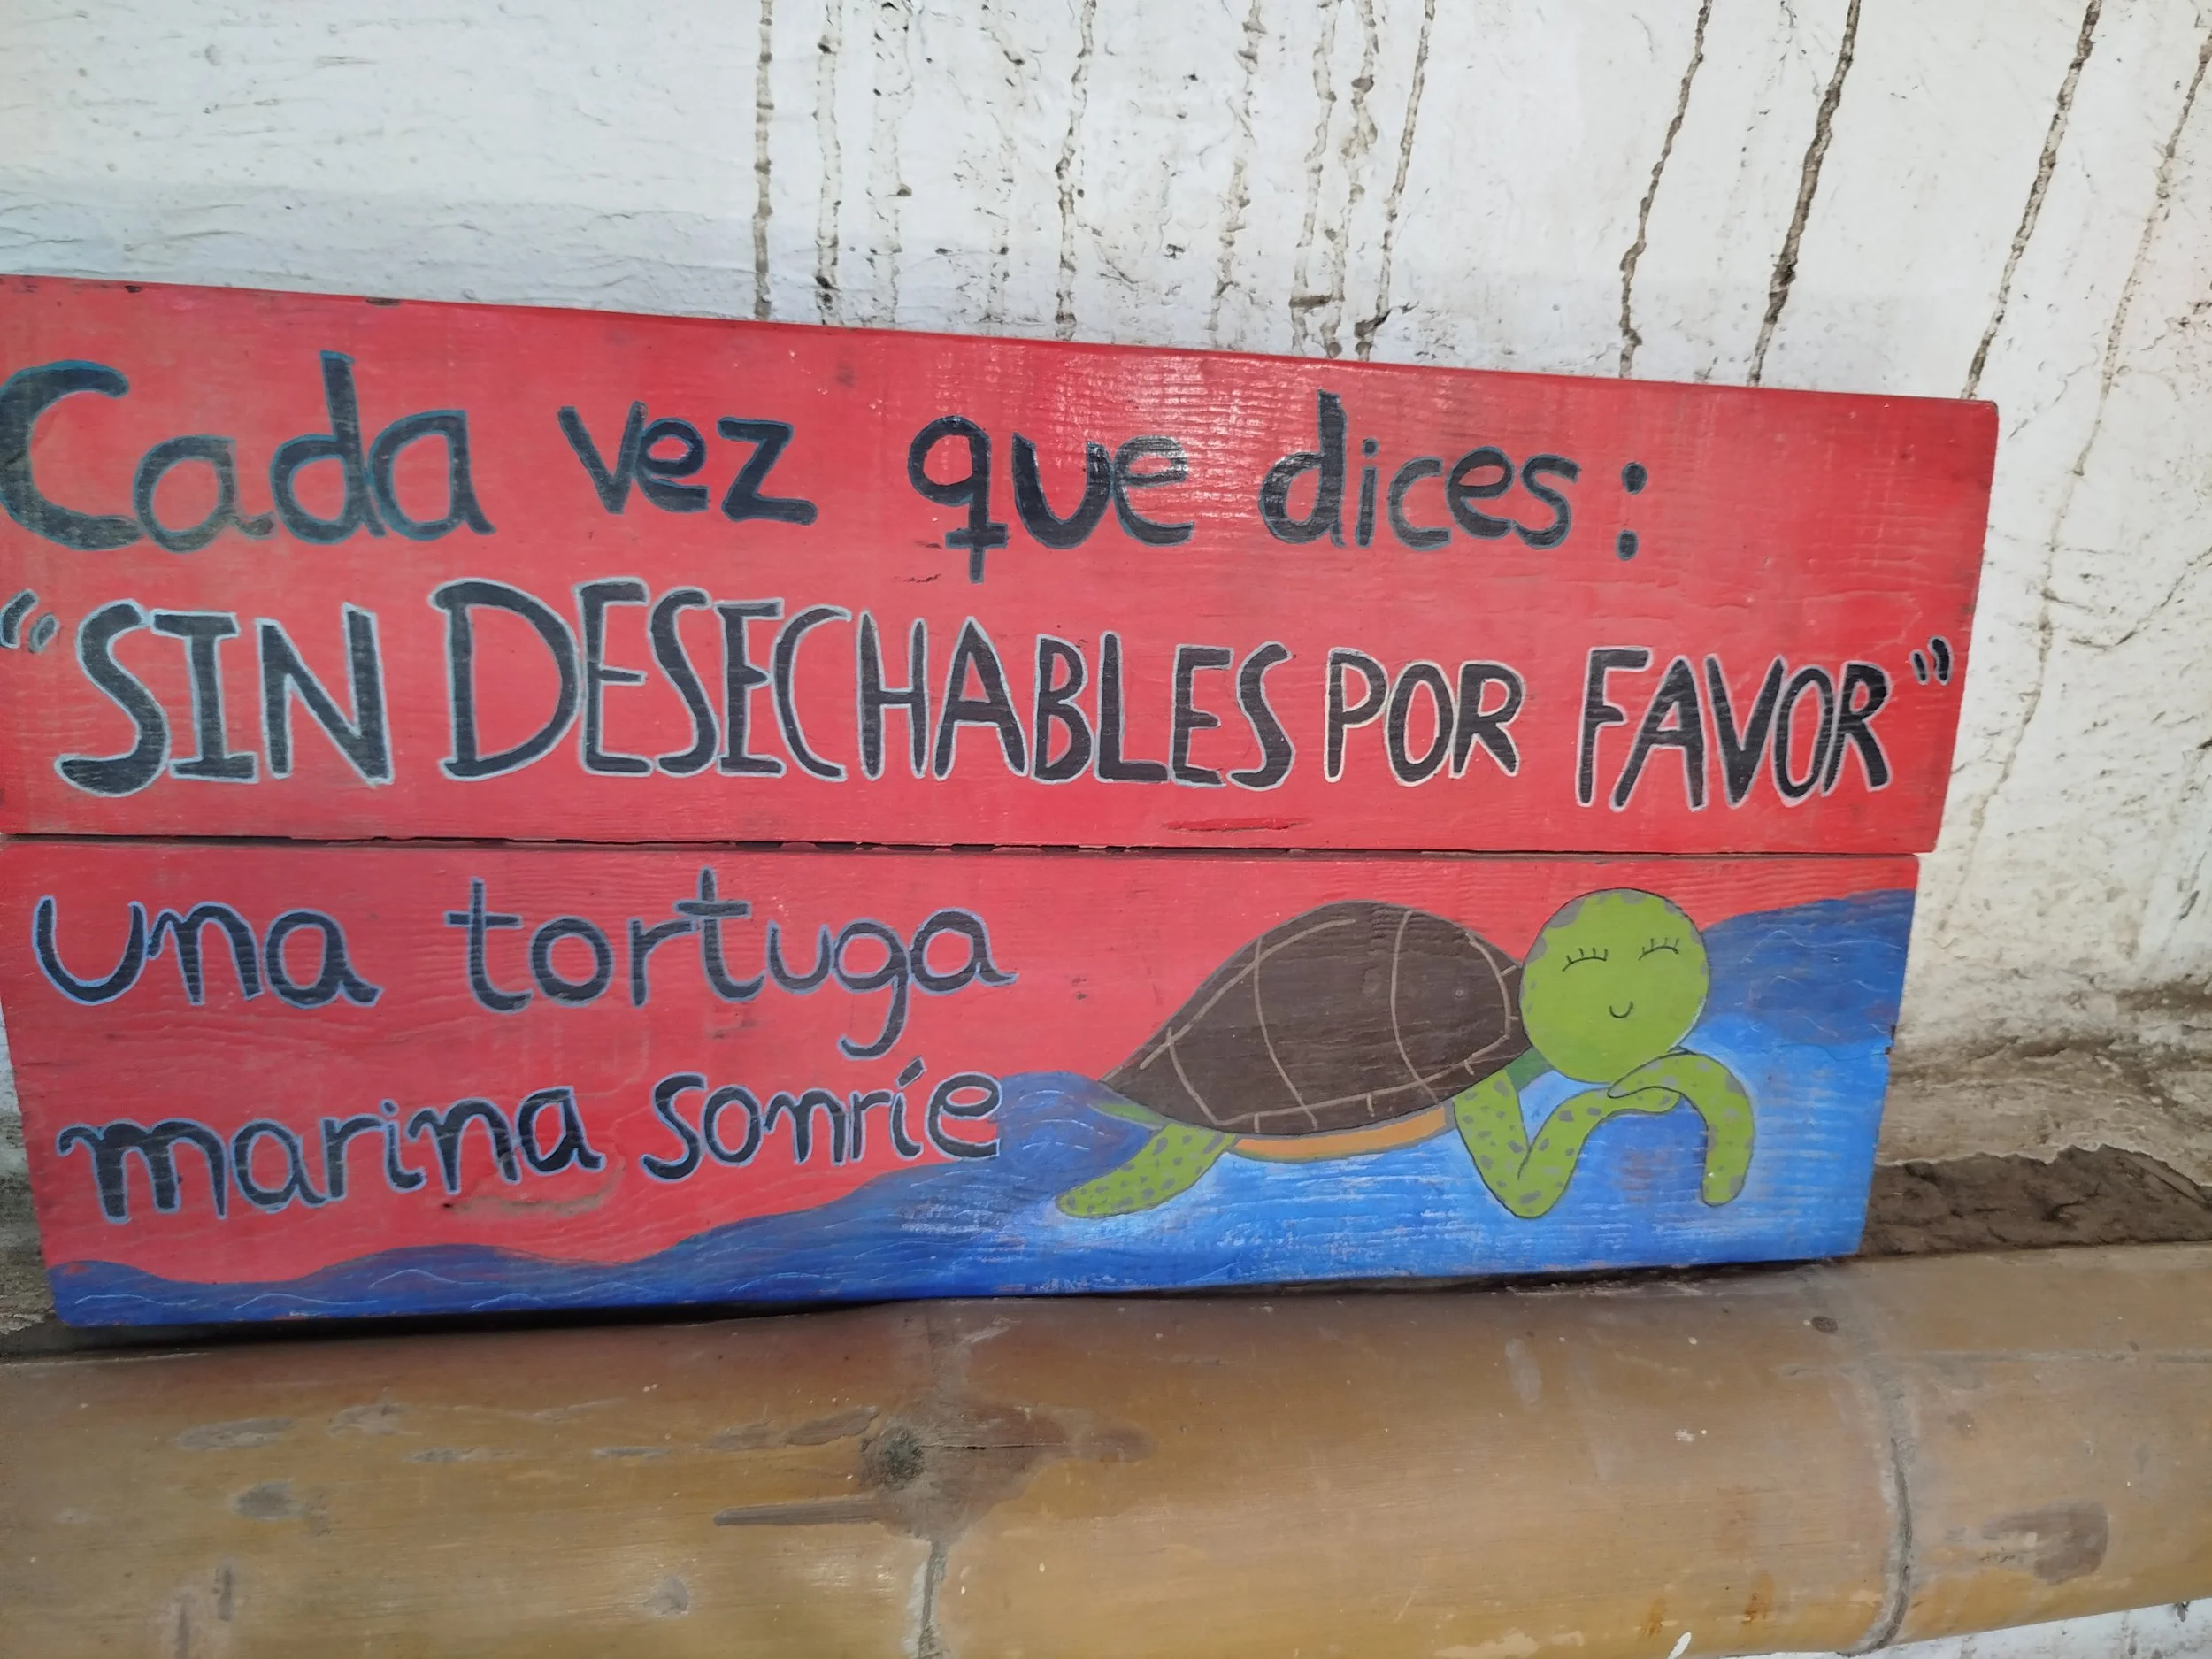 Cada vez que dices:
"SIN DESECHABLES POR FAVOR"
una tortuga
marina sonríe